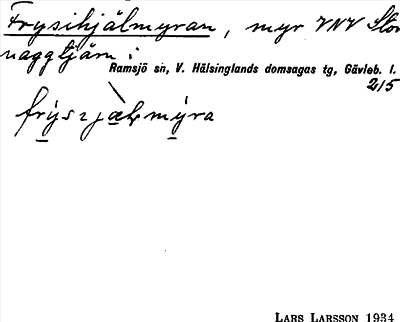 Frysihjälmyran, myr VNV Stor
naggtjärn:
Ramsjö sn, V. Hälsinglands domsagas tg, Gävleb. l.
215
LARS LARSSON 1934